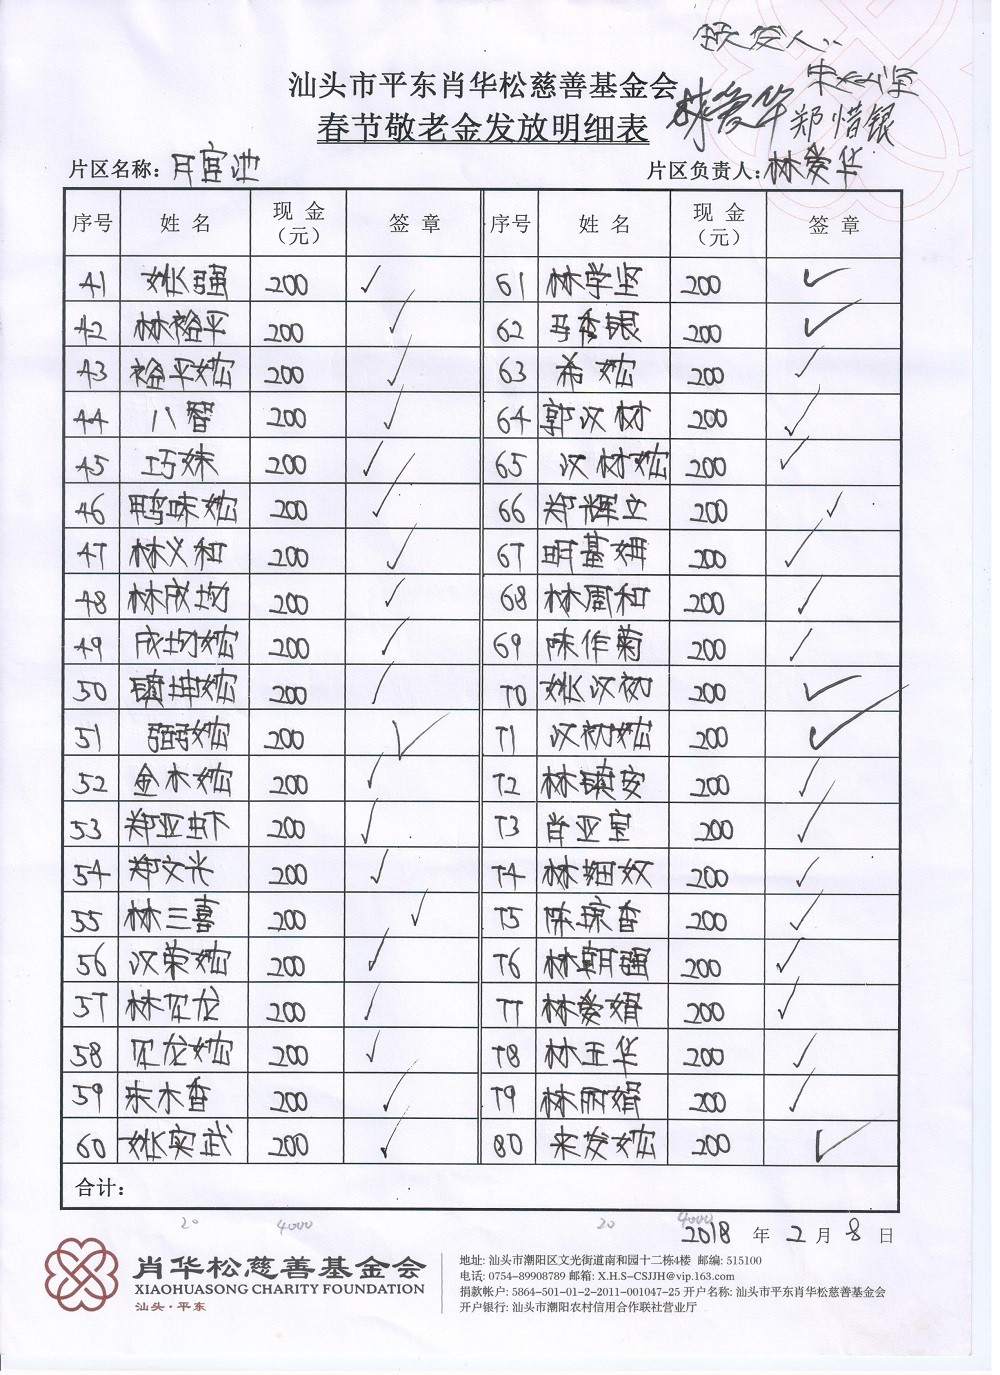 领发人:
汕头市平东肖华松慈善基金会
林爱华 郑惜银
春节敬老金发放明细表
片区名称: 月宫池 片区负责人: 林爱华
序号 姓名 现金(元) 签章 序号 姓名 现金(元) 签章
41 姚强 200 ✓ 61 林学坚 200 ✓
42 林裕平 200 ✓ 62 马秀银 200 ✓
43 裕平婶 200 ✓ 63 希婶 200 ✓
44 八智 200 ✓ 64 郭汉树 200 ✓
45 巧妹 200 ✓ 65 汉树婶 200 ✓
46 鸭味婶 200 ✓ 66 郑辉立 200 ✓
47 林义和 200 ✓ 67 明基姆 200 ✓
48 林成均 200 ✓ 68 林周和 200 ✓
49 成均婶 200 ✓ 69 陈作菊 200 ✓
50 镇坤婶 200 ✓ 70 姚汉初 200 ✓
51 婶 200 ✓ 71 汉初婶 200 ✓
52 金木婶 200 ✓ 72 林镇安 200 ✓
53 郑亚虾 200 ✓ 73 肖亚宝 200 ✓
54 郑文光 200 ✓ 74 林细奴 200 ✓
55 林三喜 200 ✓ 75 陈琼香 200 ✓
56 汉荣婶 200 ✓ 76 林朝强 200 ✓
57 林龙 200 ✓ 77 林爱娟 200 ✓
58 龙婶 200 ✓ 78 林玉华 200 ✓
59 木香 200 ✓ 79 林丽娟 200 ✓
60 姚实武 200 ✓ 80 来发婶 200 ✓
合计:
20 4000 20 4000
2018 年 2 月 8 日
肖华松慈善基金会
XIAOHUASONG CHARITY FOUNDATION
汕头·平东
地址: 汕头市潮阳区文光街道南和园十二栋4楼 邮编: 515100
电话: 0754-89908789 邮箱: X.H.S-CSJJH@vip.163.com
捐款帐户: 5864-501-01-2-2011-001047-25 开户名称: 汕头市平东肖华松慈善基金会
开户银行: 汕头市潮阳农村信用合作联社营业厅